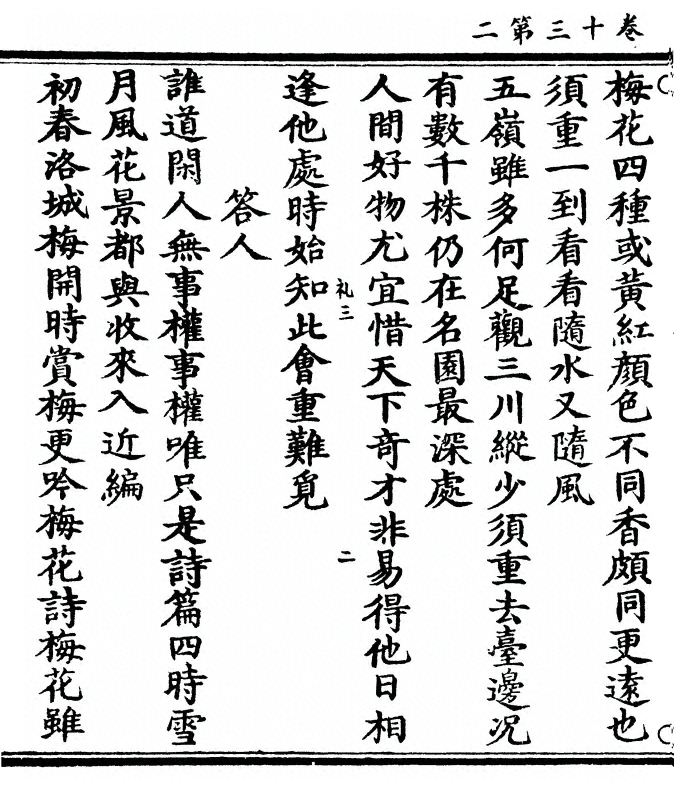 卷十三第二
梅花四種或黃紅顏色不同香頗同更遠也
須重一到看看隨水又隨風
五嶺雖多何足觀三川縱少須重去臺邊况
有數千株仍在名園最深處
人間好物尤宜惜天下奇才非易得他日相
逢他處時始知此會重難覓
答人
誰道閑人無事權事權唯只是詩篇四時雪
月風花景都與收來入近編
初春洛城梅開時賞梅更吟梅花詩梅花雖
礼三
二